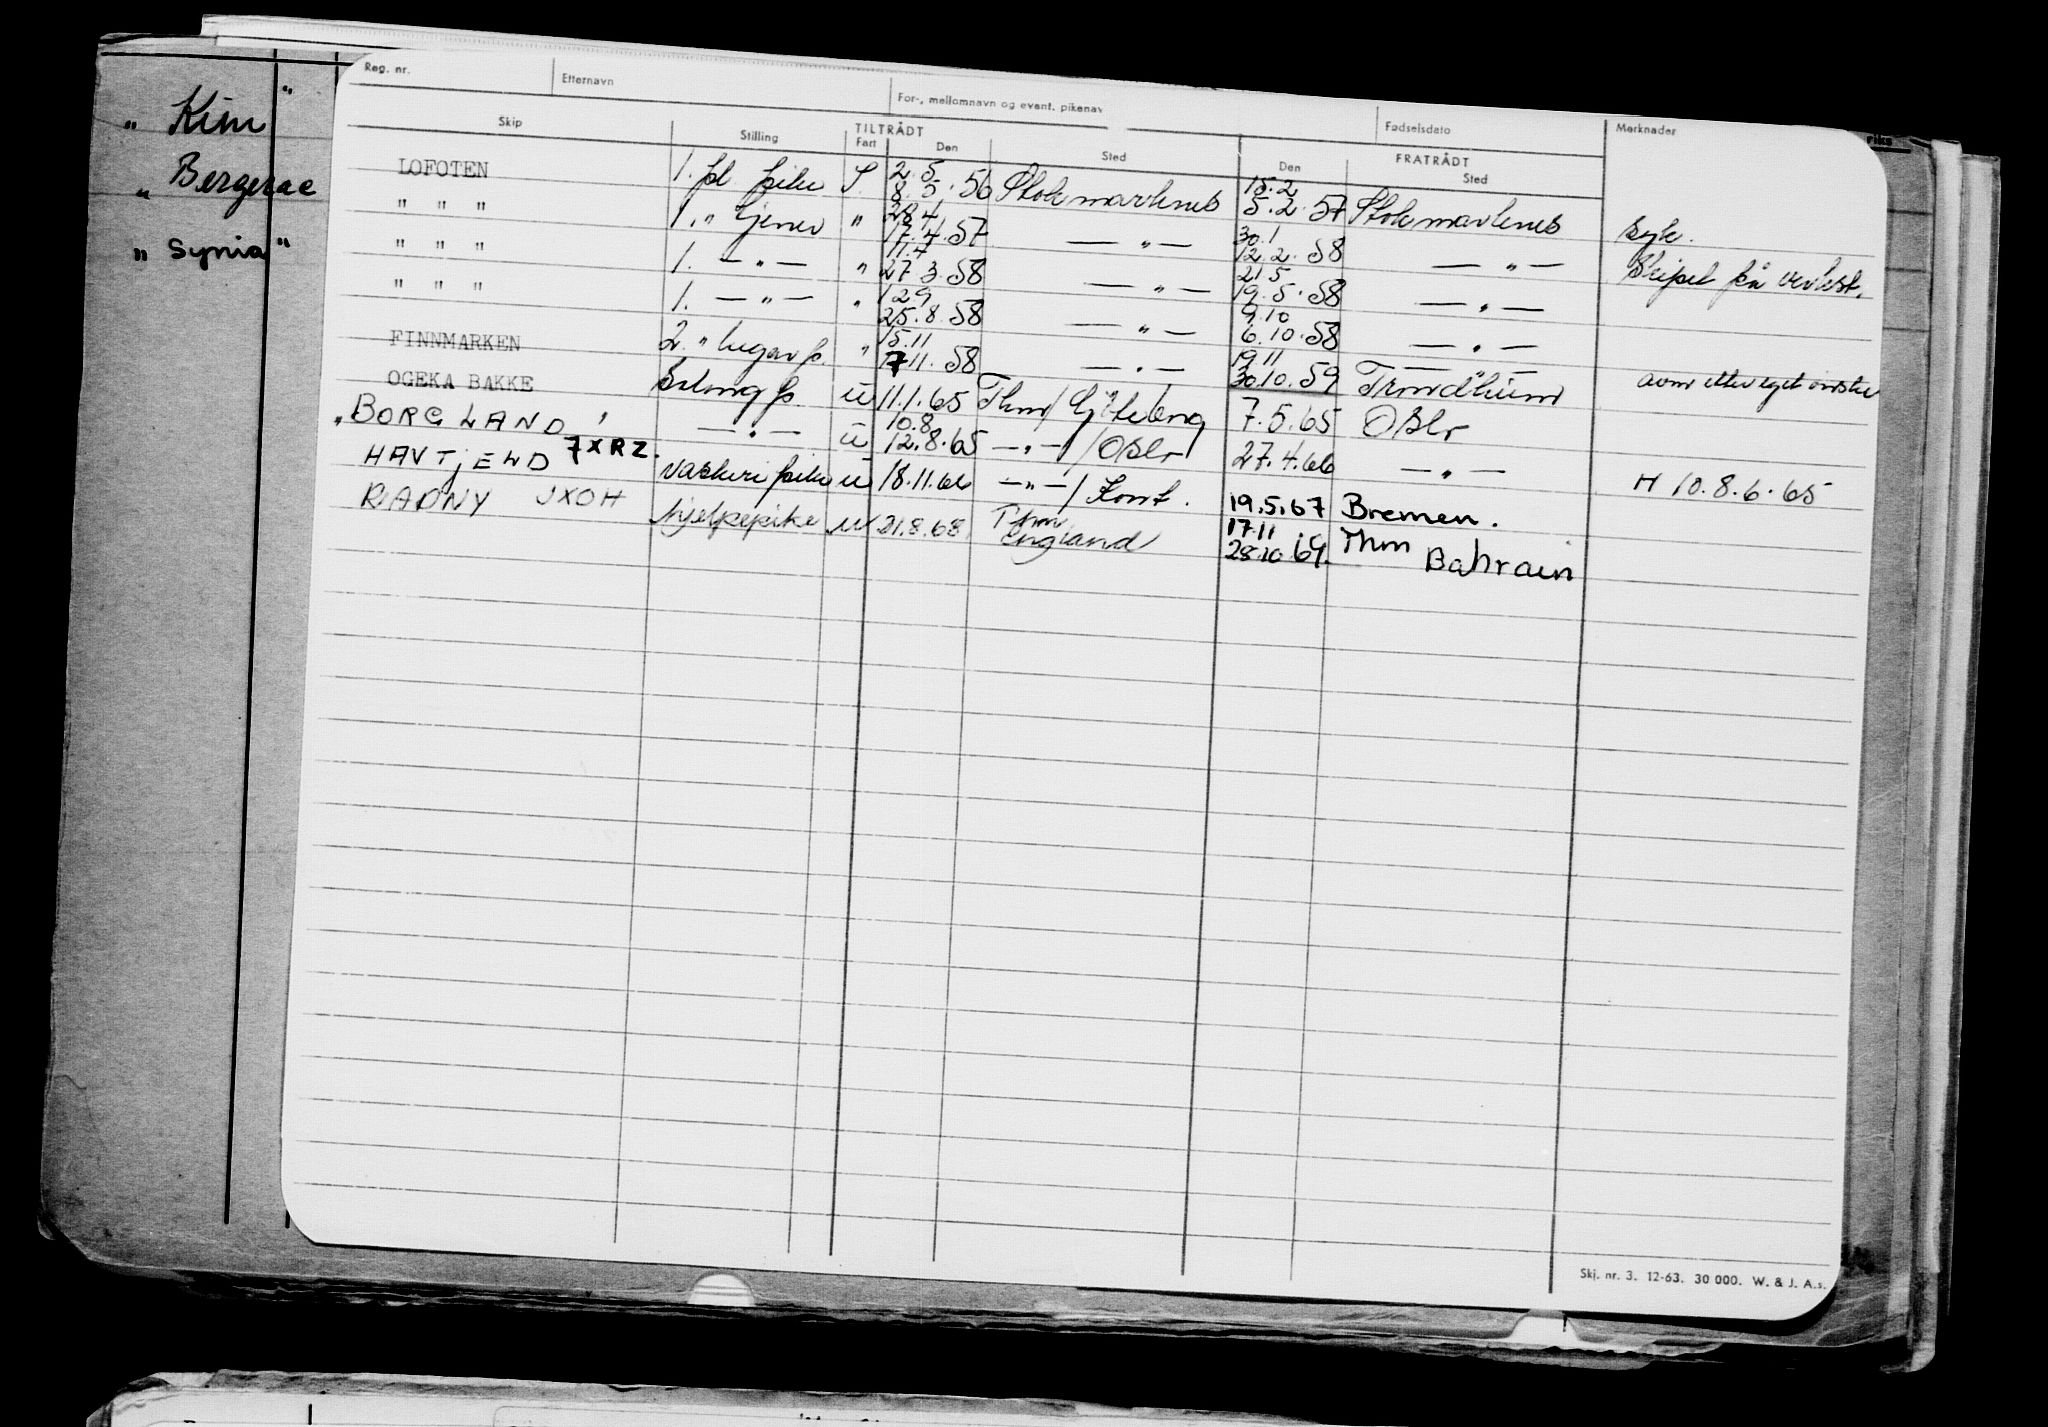 " Kim "
" Bergerac
" Synia "
Reg. nr. Etternavn For-, mellomnavn og event. pikenav Fødselsdato Merknader
Skip Stilling TILTRÅDT Fart Den Sted FRATRÅDT Den Sted
LOFOTEN 1. pl pike S. 2.5. 8.5.56 Stokmarknes 15.2 5.2.57 Stokmarknes syk.
" " " 1. " " 28.4 17.4.57 — " — 30.1 12.2.58 — " — på verkst.
" " " 1. — " — " 11.4 27.3.58 — " — 21.5 19.5.58 — " —
" " " 1. — " — " 12.9 25.8.58 — " — 9.10 6.10.58 — " —
FINNMARKEN 2. " lugar p. " 15.11 11.58 — " — 19.11 30.10.59 Trondheim avm etter eget ønske
OGEKA BAKKE p. u 11.1.65 Thm / Göteborg 7.5.65 Oslo
"BORGLAND" — " — u 10.8 12.8.65 — " — / Oslo 27.4.66 — " — H 10.8.6.65
HAVTJELD 7XRZ. vaskeri pike u 18.11.66 — " — / 19.5.67 Bremen.
RADNY JXOH hjelpepike 21.8.68 Thm England 17.11 28.10.69. Thm Bahrain
Skj. nr. 3. 12-63. 30 000. W. & J. A.s.